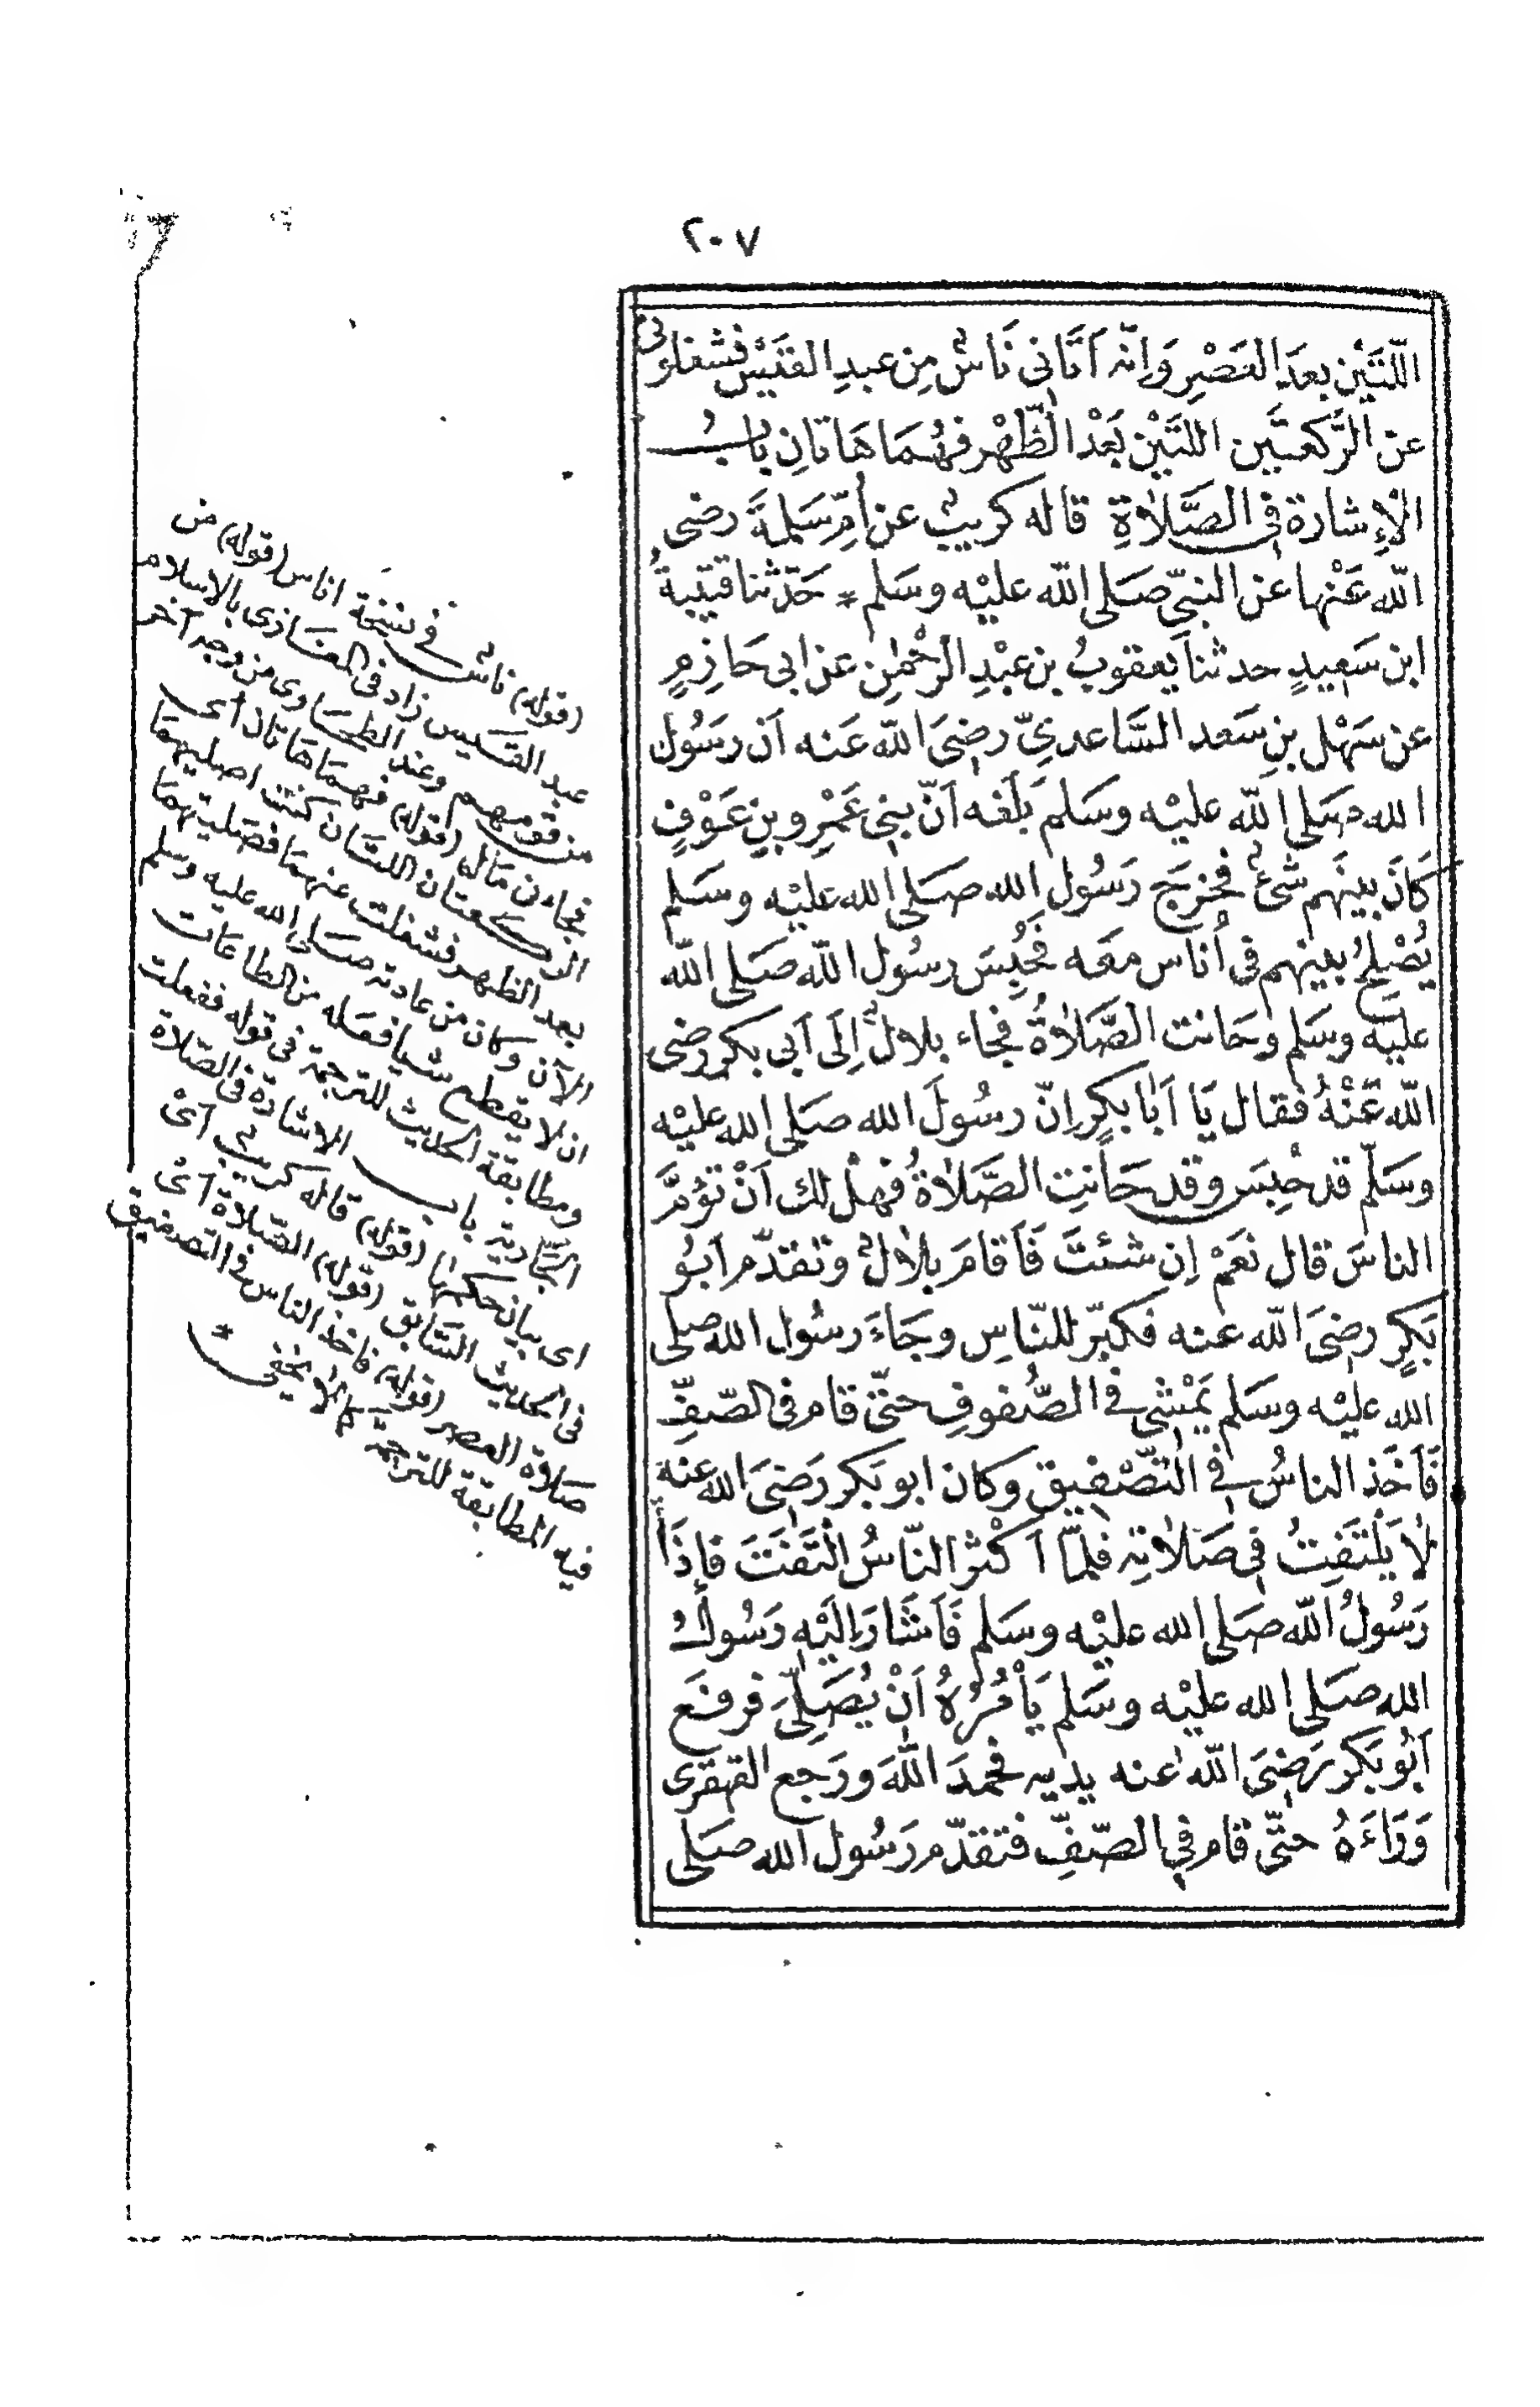 ٢٠٧
اللَّتَيْنِ بعدَ العَصْرِ وَاِنّه اَتَانى نَاسٌ مِن عبدِ القَيْس فشغلونى
عن الرَّكعتَين اللتَيْنِ بَعْدَ الظّهْر فهُمَا هَاتانِ بابُ
الْاِشارة فى الصَّلاٰةِ قاله كريبٌ عن اُمّ سَلمةَ رضى
الله عَنْها عن النبىّ صَلى الله عليْه وسَلم * حَدّثنا قتيبةُ
ابن سَعيدٍ حدثنا يعقوبُ بن عبْدِ الرَّحْمٰنِ عن ابى حَازِمٍ
عن سَهْل بنِ سَعد السَّاعدىّ رضىَ الله عَنه اَن رسَوُل
الله صَلى الله عليْه وسَلم بَلغه اَنّ بنى عَمْرِ وبنِ عَوْفٍ
كَانَ بينَهم شئٌ فخرَج رَسوُل الله صَلى الله عليْه وسَلم
يُصْلحُ بينهم فى اُناس معَه فحُبِسَ رسوُل الله صَلى الله
عليْه وسَلم وحَانت الصَّلاٰةُ فجاء بلالٌ اِلَى اَبى بكر رضى
الله عَنْهُ فقال يَا اَبَا بكرٍ اِنّ رسوُلَ الله صَلى الله عليْه
وسَلّم قد حُبِسَ وقد حَانتِ الصَّلاٰةُ فهلْ لك اَنْ تؤمَّ
الناسَ قال نعَمْ اِن شئتَ فَاَقامَ بلاٰلٌ وتقدّم اَبوُ
بَكرٍ رضىَ الله عنه فكبّر للنّاسِ وجَاءَ رسوُل الله صلى
الله عليْه وسَلم يَمْشى فى الصُّفوفِ حتّى قام فى الصّفِّ
فَاَخَذ الناسُ فى التَّصْفيق وكان ابو بَكر رَضىَ الله عنه
لاٰ يَلْتَفِتُ فى صَلاٰتِه فلمّا اَكْثر النّاسُ الْتَفَتَ فاِذَا
رَسوُلُ الله صَلى الله عليْه وسَلم فَاَشَارَ اِلَيْه رَسوُلُ
الله صَلى الله عليْه وسَلم يَأْمُرُهُ اَنْ يُصَلِّىَ فرفَع
اَبُو بَكر رَضىَ الله عنه يدَيه فحمدَ اللهَ ورَجع القهقرى
وَرَاءَهُ حتّى قام فى الصّفِّ فتقدّم رَسوُل الله صَلى
(قوله) ناسٌ فى نسخة اناس (قوله) من
عبد القيس زاد فى المغازى بالاسلام
من قومهم وعند الطحاوى من وجه آخر
فجاءن مال (قوله) فهما هاتان أى
الركعتان اللتان كنت اصليهما
بعد الظهر فشغلت عنهما فصليتهما
الآن وكان من عادته صَلى الله عليه وسلم
ان لا يقطع شيا فعَله من الطاعات
ومطابقة الحديث للترجمة فى قوله ففعلت
الجارية باب الاشارة فى الصّلاة
اى بيان حكمها (قوله) قاله كريب أىْ
فى الحديث السّابق (قوله) الصّلاة أىْ
صلاة العصر (قوله) فاخذ الناس فى التصفيق
فيه المطابقة للترجمة كما لا يخفى *